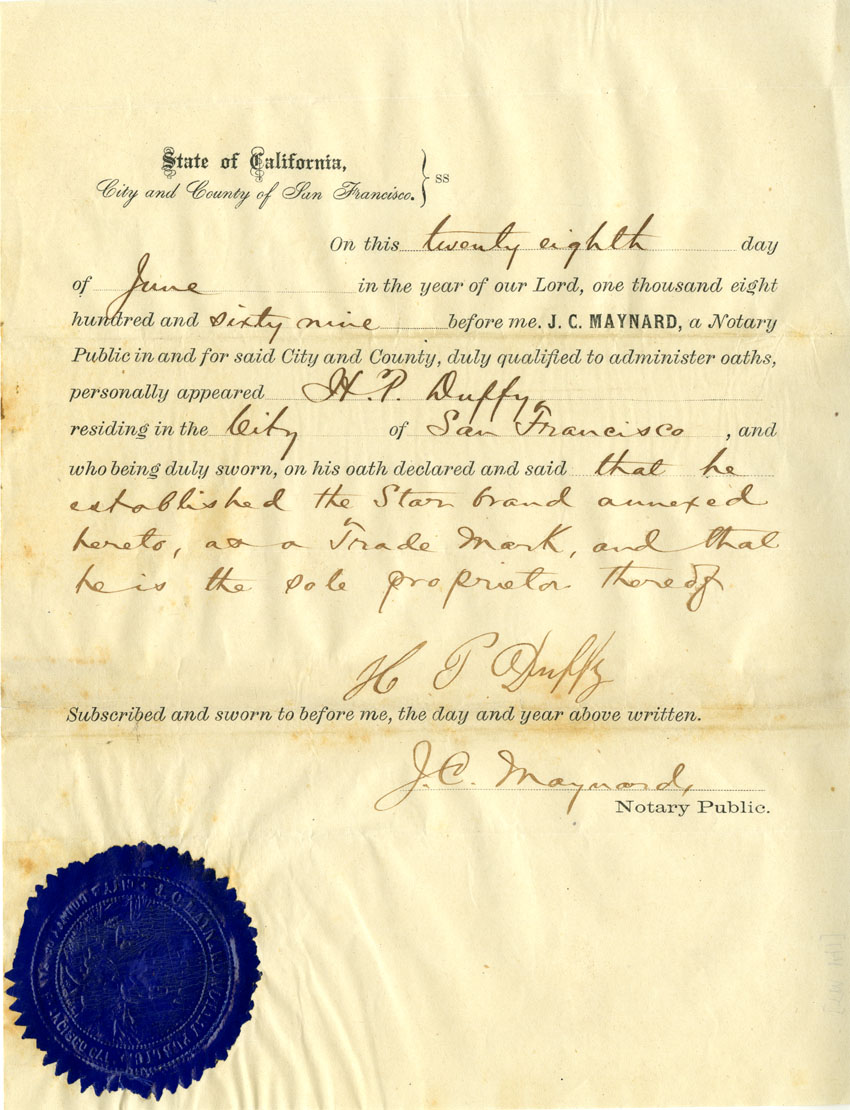 State of California,
City and County of San Francisco. } ss
On this twenty eighth day
of June in the year of our Lord, one thousand eight
hundred and sixty nine before me. J. C. MAYNARD, a Notary
Public in and for said City and County, duly qualified to administer oaths,
personally appeared H. P. Duffy,
residing in the City of San Francisco, and
who being duly sworn, on his oath declared and said that he
established the Star brand annexed
hereto, as a Trade Mark, and that
he is the sole proprietor thereof
H P Duffy
Subscribed and sworn to before me, the day and year above written.
J. C. Maynard,
Notary Public.